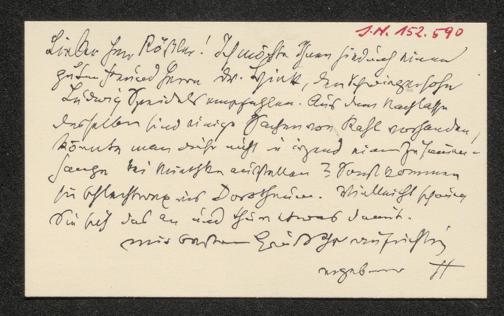 I.N. 152.590
Lieber Herr Rößler! Ich möchte Ihnen hiedurch einen
guten Freund Herrn Dr. Zink, den Schwiegersohn
Ludwig Speidels empfehlen. Aus dem Nachlasse
desselben sind einige Sachen von Rahl vorhanden,
könnte man diese nicht in irgend einem Zusammen-
hange bei Miethke ausstellen? Sonst kommen
sie schlechtweg ins Dorotheum. Vielleicht schauen
Sie sich das an und thun etwas damit.
Mit besten Grüßen Ihr aufrichtig
ergebener